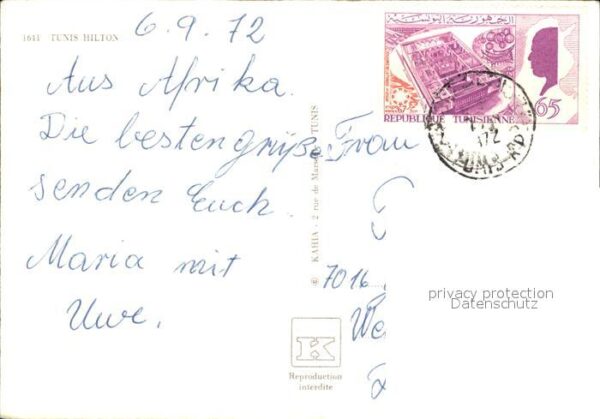 6.9.72
1611 TUNIS HILTON
Aus Afrika.
Die besten grüße
senden Euch
Maria mit
Uwe.
© KAHIA - 2 rue de Marseille - TUNIS
Reproduction
interdite
الجمهورية التونسية
REPUBLIQUE TUNISIENNE
65
Frau
7016
We
privacy protection
Datenschutz